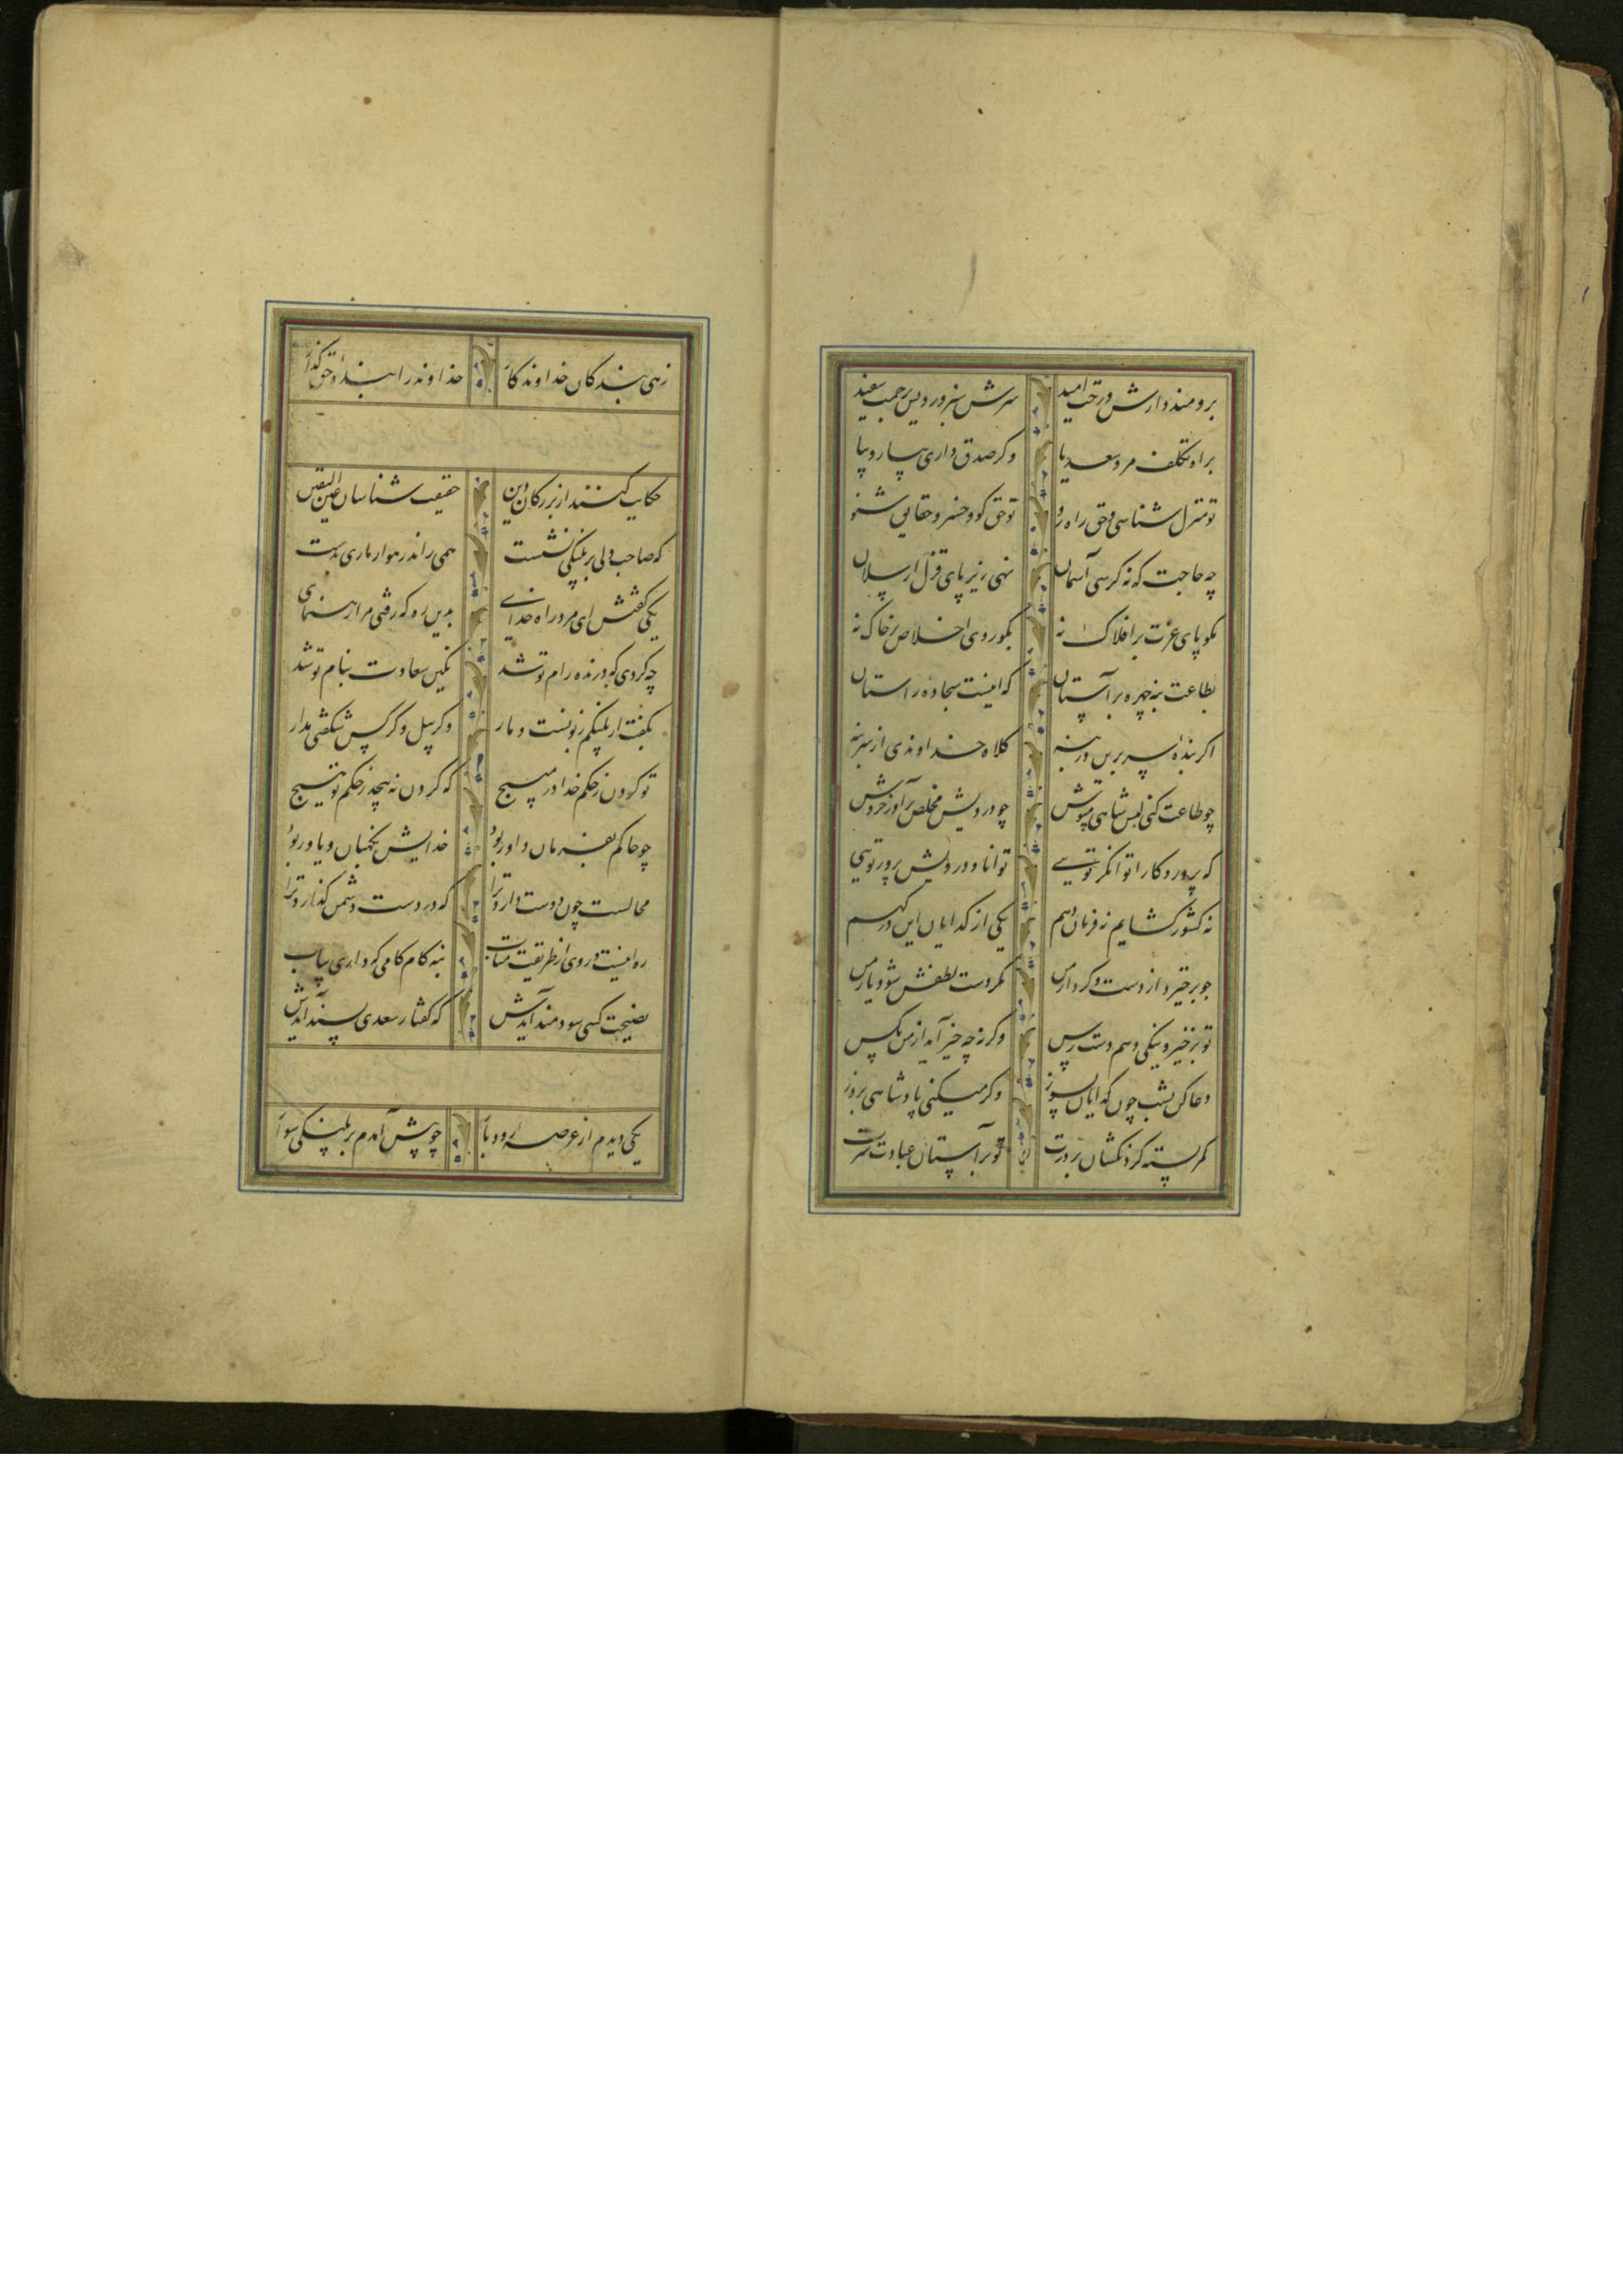 برومند دارش درخت امید سرش سبز و رویش برحمت سفید
براه تکلف مرو سعدیا و کر صدق داری بیار و بیا
تو منزل شناسی و حق راه رو تو حق کو و خسرو حقایق شنو
چه حاجت که نه کرسی آسمان نهی زیر پای قزل ارسلان
مکو پای عزت بر افلاک نه بکو روی اخلاص بر خاک نه
بطاعت بنه چهره بر آستان که اینست سجاده راستان
اکر بنده سر برین در بنه کلاه خداوندی از سر بنه
چو طاعت کنی لبس شاهی مپوش چو درویش مخلص برآور خروش
که پروردکارا توانکر تویی توانا و درویش پرور تویی
نه کشور کشایم نه فرمان دهم یکی از کدایان این درکهم
چو بر خیزد از دست و کردار من مکر دست لطفش شود یار من
تو بر خیر و نیکی دهم دسترس وکرنه چه خیر آید از من بکس
دعا کن بشب چون کدایان بسوز وکر میکنی پادشاهی بروز
کمر بسته کردنکشان بر درت تو بر آستان عبادت سرت
زهی بندکان خداوندکار خداوند را بنده حق کذار
حکایت کنند از بزرکان دین حقیقت شناسان عین الیقین
که صاحب دلی بر پلنکی نشست همی راند رهوار ماری بدست
یکی کفتش ای مرد راه خدای بدین ره که رفتی مرا ره نمای
چه کردی که درنده رام تو شد نکین سعادت بنام تو شد
بکفت ار پلنکم زبونست و مار وکر پیل و کرکس شکفتی مدار
تو کردن ز حکم خدا در مپیچ که کردن نه پیچد ز حکم تو هیچ
چو حاکم بفرمان داور بود خدایش نکهبان و یاور بود
محالست چون دوست دارد ترا که در دست دشمن کذارد ترا
ره اینست روی از طریقت متاب بنه کام کامی که داری بیاب
نصیحت کسی سودمند آیدش که کفتار سعدی پسند آیدش
یکی دیدم از عرصه رودبار چو پیش آمدم بر پلنکی سوار